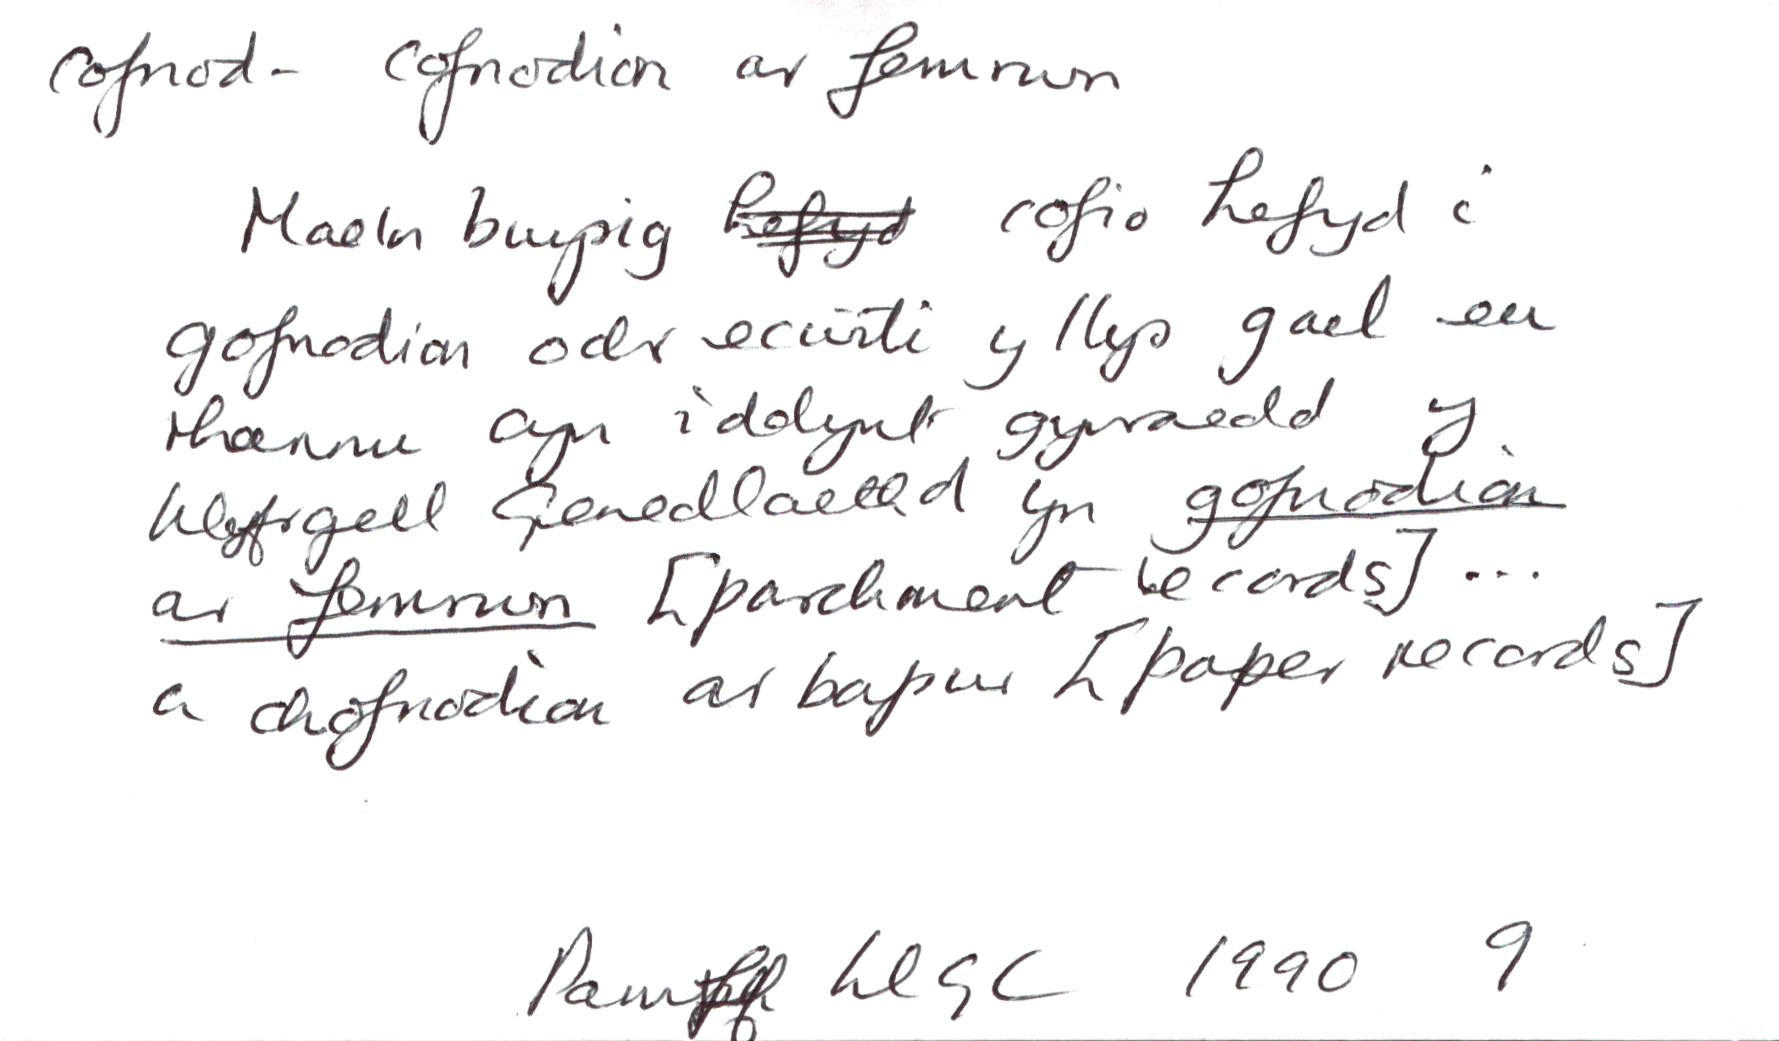 cofnod - cofnodion ar femrwn
Mae'n bwysig ~~hefyd~~ cofio hefyd i
gofnodion oddi wrth y llys gael eu
rhannu cyn iddynt gyrraedd y
Llyfrgell Genedlaethol yn gofnodion
ar femrwn [parchment records] ...
a chofnodion ar bapur [paper records]
Pamff LlGC 1990 9